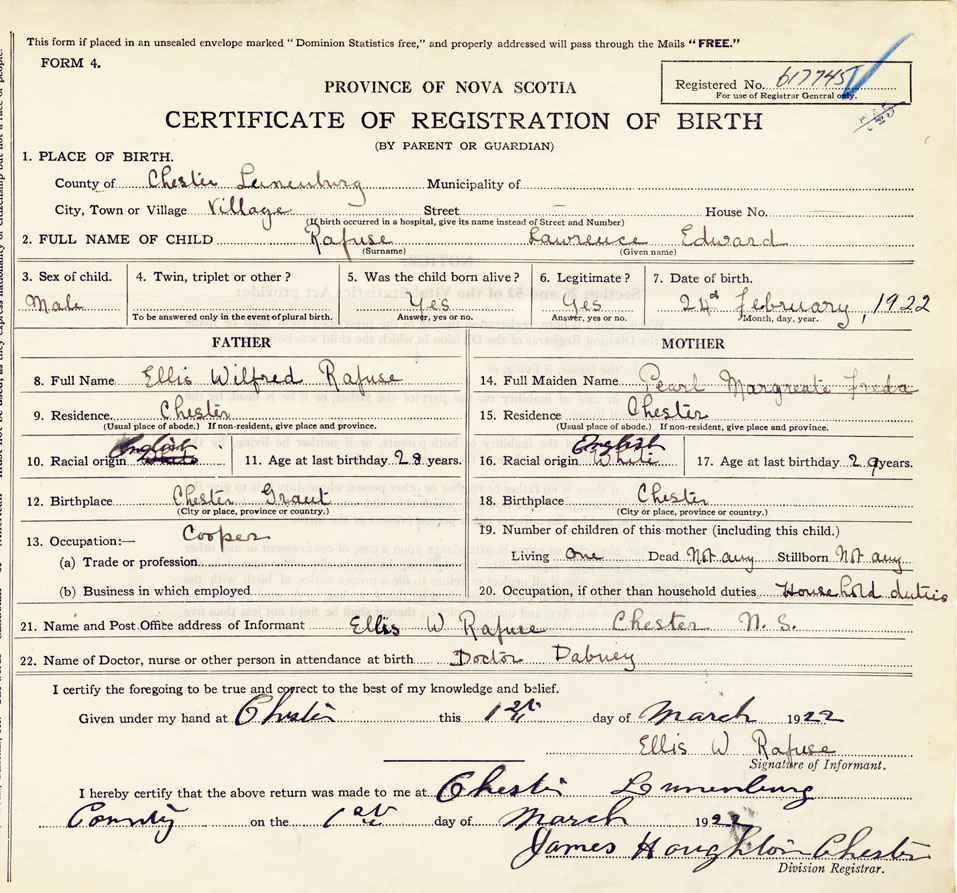 This form if placed in an unsealed envelope marked "Dominion Statistics free," and properly addressed will pass through the Mails "FREE."
FORM 4.
Registered No. 617745
For use of Registrar General only.
PROVINCE OF NOVA SCOTIA
CERTIFICATE OF REGISTRATION OF BIRTH
(BY PARENT OR GUARDIAN)
1. PLACE OF BIRTH.
County of Chester Lunenburg Municipality of
City, Town or Village Village Street – House No.
(If birth occurred in a hospital, give its name instead of Street and Number)
2. FULL NAME OF CHILD Rafuse Lawrence Edward
(Surname) (Given name)
3. Sex of child. 4. Twin, triplet or other? 5. Was the child born alive? 6. Legitimate? 7. Date of birth.
Male Yes Yes 24 February, 1922
To be answered only in the event of plural birth. Answer, yes or no. Answer, yes or no. Month, day, year.
FATHER MOTHER
8. Full Name Ellis Wilfred Rafuse 14. Full Maiden Name Pearl Margreate Freda
9. Residence. Chester 15. Residence Chester
(Usual place of abode.) If non-resident, give place and province. (Usual place of abode.) If non-resident, give place and province.
English English
10. Racial origin White 11. Age at last birthday 28 years. 16. Racial origin White 17. Age at last birthday 29 years.
12. Birthplace Chester Graut 18. Birthplace Chester
(City or place, province or country.) (City or place, province or country.)
13. Occupation:— Cooper 19. Number of children of this mother (including this child.)
(a) Trade or profession Living One Dead Not any Stillborn Not any
(b) Business in which employed 20. Occupation, if other than household duties Household duties
21. Name and Post Office address of Informant Ellis W Rafuse Chester N. S.
22. Name of Doctor, nurse or other person in attendance at birth Doctor Dabney
I certify the foregoing to be true and correct to the best of my knowledge and belief.
Given under my hand at Chester this 1st day of March 1922
Ellis W Rafuse
Signature of Informant.
I hereby certify that the above return was made to me at Chester Lunenburg
County on the 1st day of March 1922
James Houghton Chester
Division Registrar.